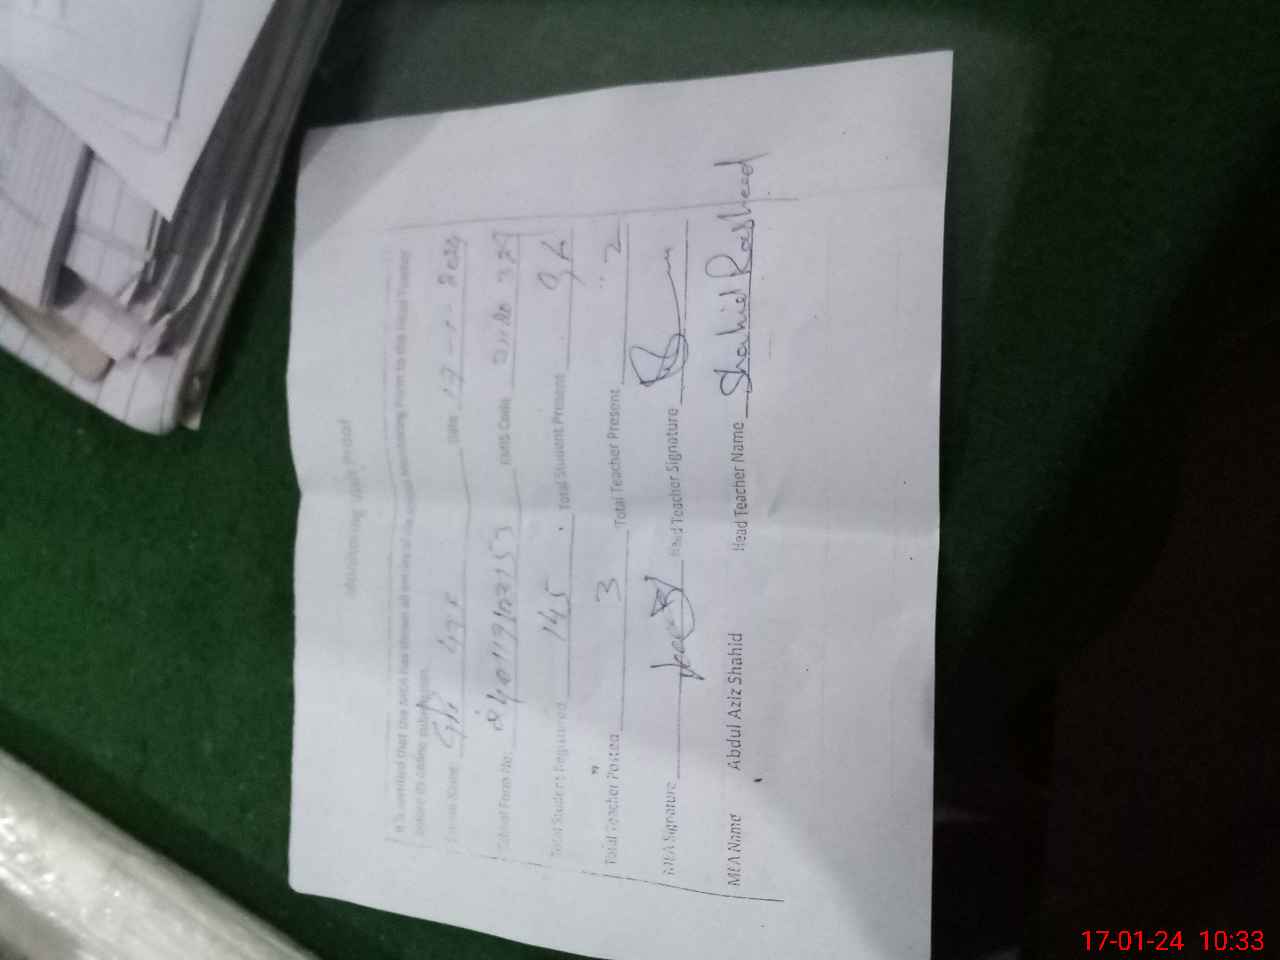 Monitoring Visit Proof
It is certified that the MEA has shown all entries of the online monitoring Form to the Head Teacher
before its online submission.
School Name Date 17-1-2024
Tablet Form No: EMIS Code
Total Student Registered 145 Total Student Present
Total Teacher Posted 3 Total Teacher Present 2
MEA Signature Head Teacher Signature
MEA Name Abdul Aziz Shahid Head Teacher Name Shahid Rasheed
17-01-24 10:33